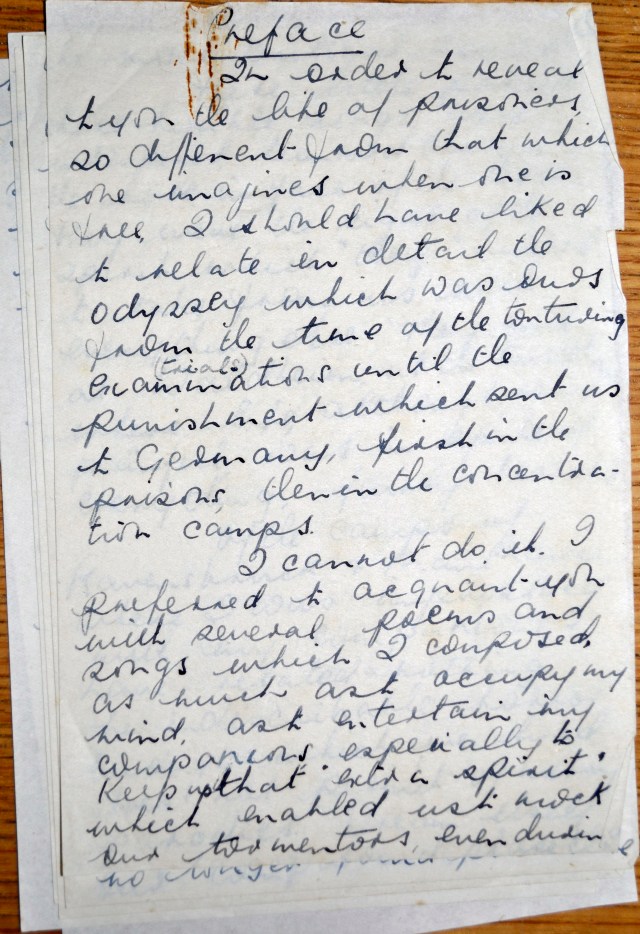 Preface
In order to reveal
to you the life of prisoners,
so different from that which
one imagines when one is
free, I should have liked
to relate in detail the
odyssey which was ours
from the time of the torturing
(trials)
examinations until the
punishment which sent us
to Germany, first in the
prisons, then in the concentra-
tion camps.
I cannot do it. I
preferred to acquaint you
with several poems and
songs which I composed,
as much as to occupy my
mind, as to entertain my
companions especially to
keep up that "extra spirit"
which enabled us to mock
our tormentors, even durin
no longer